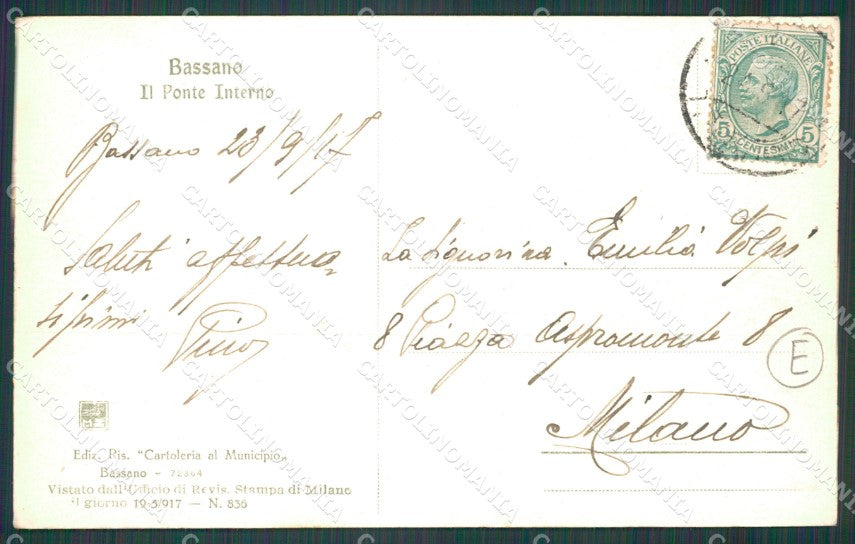 Bassano
Il Ponte Interno
Bassano 23/9/17
Saluti affettuo
sissimi
Pino
Ediz. Ris. "Cartoleria al Municipio"
Bassano - 72364
Vistato dall'Ufficio di Revis. Stampa di Milano
il giorno 19-5/917 — N. 836
POSTE ITALIANE
5 CENTESIMI 5
La Signorina Emilia Volpi
8 Piazza Aspromonte 8
E
Milano
CARTOLINOMANIA